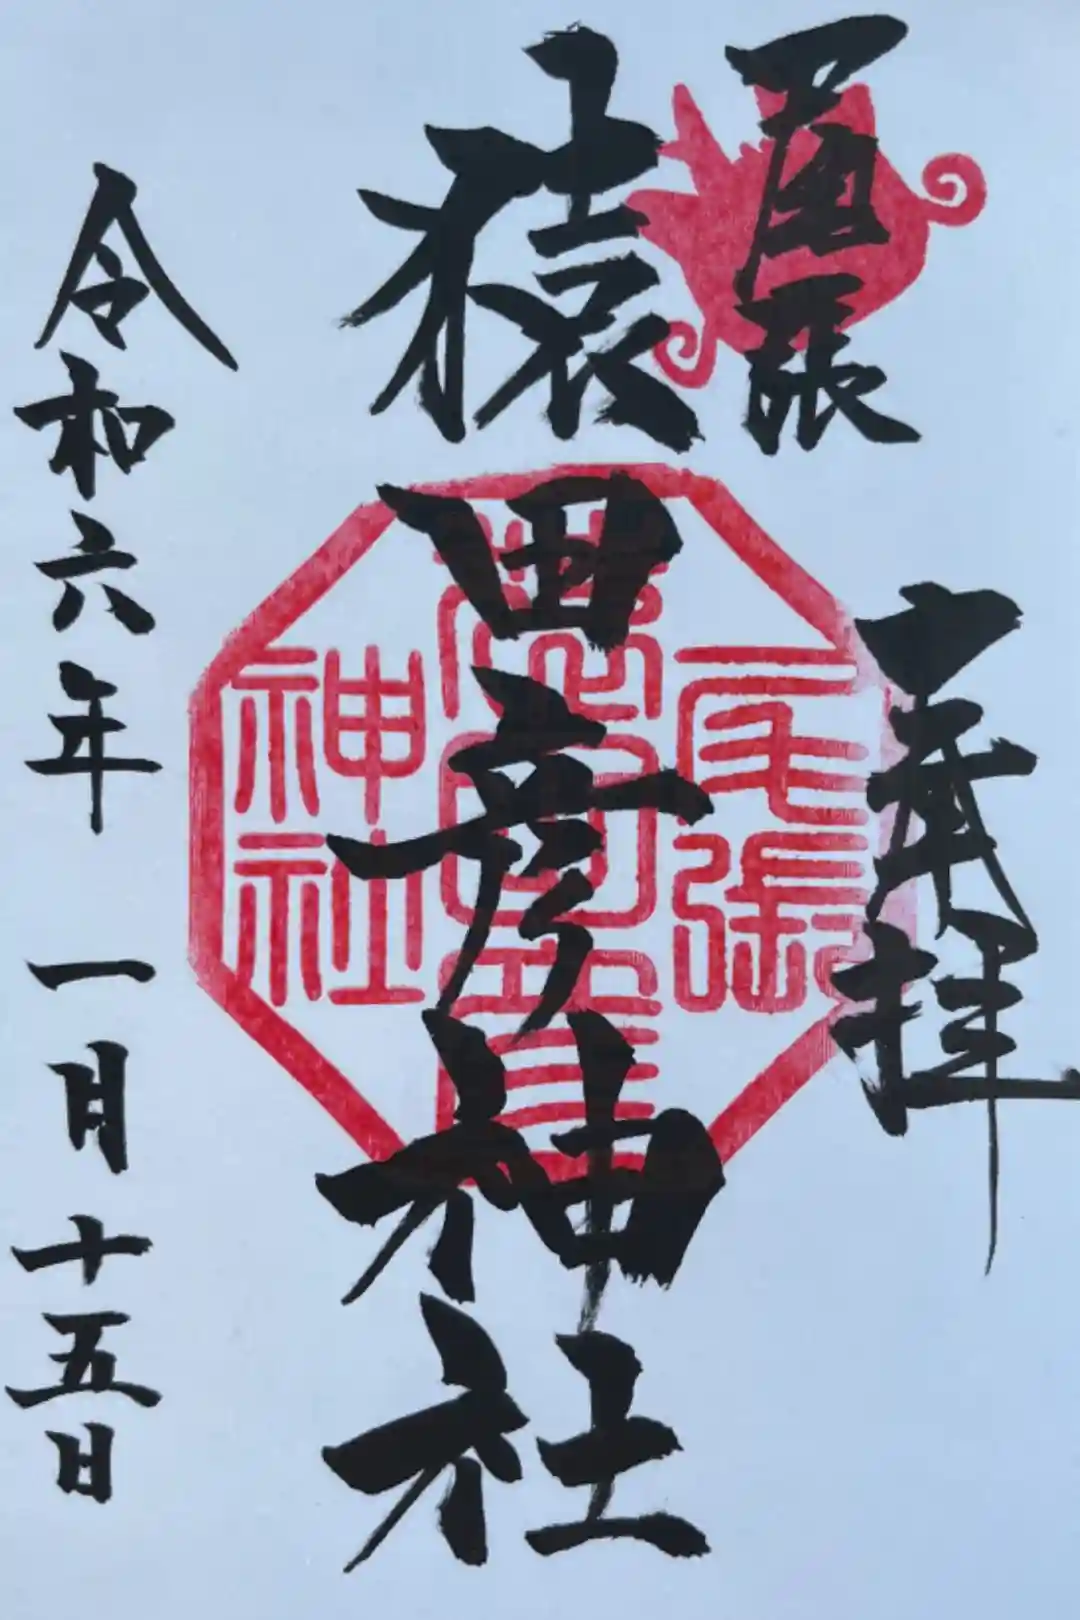 尾張
奉拝
猿田彦神社
令和六年 一月十五日
尾張
猿田彦
神社